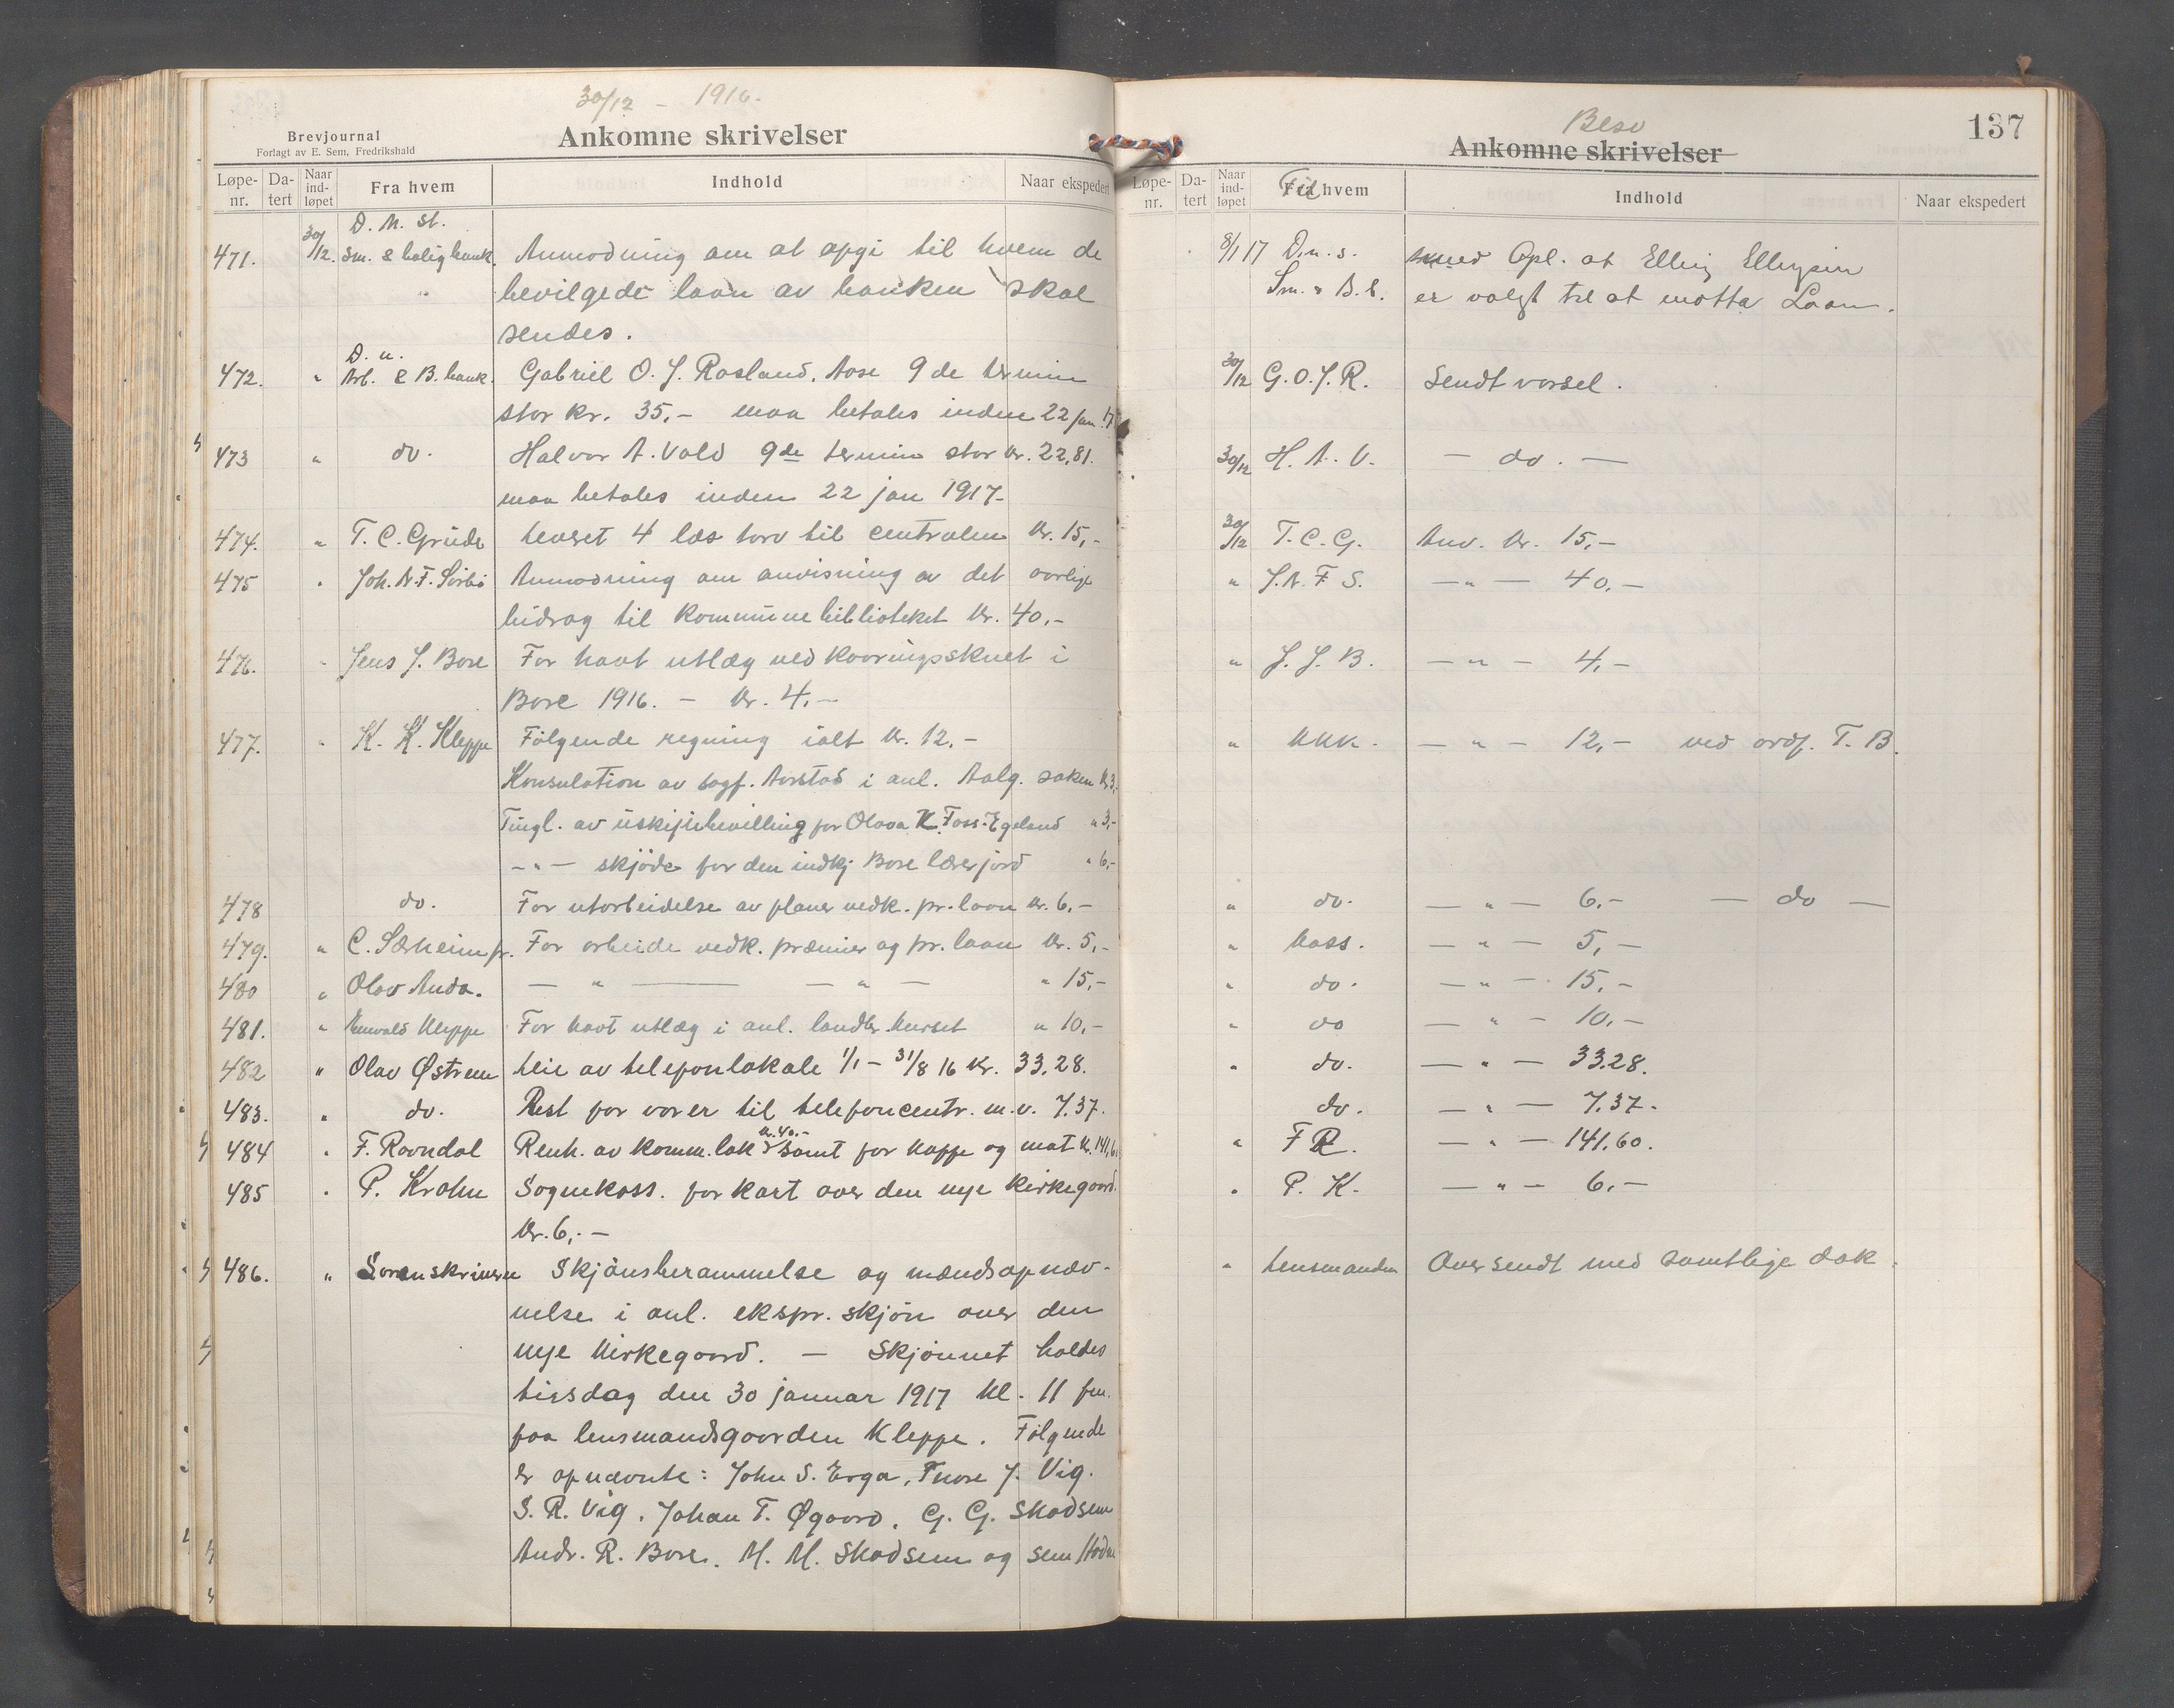 30/12 - 1916.
Brevjournal
Forlagt av E. Sem, Fredrikshald
Ankomne skrivelser
Løpe-nr. Da-tert Naar ind-løpet Fra hvem Indhold Naar ekspedert
D. N. St.
471. 30/12. Sm. & boligbank. Anmodning om at opgi til hvem de
" bevilgede laan av banken skal
sendes.
D. n.
472. " Arb. & B. bank. Gabriel O. J. Rosland. Aase 9de termin
stor kr. 35,- maa betales inden 22 jan. 17
473 " do. Halvor A. Vold 9de termin stor kr. 22,81.
maa betales inden 22 jan 1917-
474. " T. C. Grude levert 4 læs torv til centralen kr. 15,-
475 " Joh. A. F. Sørbø Anmodning om anvisning av det aarlige
bidrag til kommunebiblioteket kr. 40.-
476. " Jens J. Bore For havt utlæg ved kaaringsskuet i
Bore 1916. - kr. 4,-
477. " K. K. Kleppe Følgende regning ialt kr. 12,-
Konsulation av sagf. Aarstad i anl. Aalg. saken kr 3,
Tingl. av uskiftebevilling for Olava K. Foss-Egeland " 3,-
- " - skjøde for den indkj Bore lærerjord " 6,-
478 do. For utarbeidelse av planer vedk. pr. laan kr. 6,-
479. " C. Særheim fr. For arbeide vedk. præmier og pr. laan kr. 5,-
480 " Olav Anda. - " - - " - " 15,-
481. " Kleppe For havt utlæg i anl. landbr. kurset " 10,-
482 " Olav Østrem Leie av telefonlokale 1/1 - 31/8 16 kr. 33.28.
483. " do. Rest for varer til telefoncentr. m. v. 7.37.
484 " F. Ravndal Renh. av komm. lok kr. 40.- samt for kaffe og mat kr. 141,60
485 " P. Krohn Sognekass. for kart over den nye kirkegaard.
kr. 6,-
486. " Sorenskriveren Skjønsberammelse og mændsopnæv-
nelse i anl. ekspr. skjøn over den
nye kirkegaard. - Skjønnet holdes
tirsdag den 30 januar 1917 kl. 11 fm.
paa lensmandsgaarden Kleppe. Følgende
er opnævnte: John S. Erga, Tuore J. Vig.
S. R. Vig. Johan T. Øgaard. G. G. Skadsem
Andr. R. Bore. M. M. Skadsem og Sem Hodne
137
Besv
Ankomne skrivelser
Løpe-nr. Da-tert Naar ind-løpet Til hvem Indhold Naar ekspedert
8/1 17 D. n. s. med Opl. at Elling Ellingsen
Sm. & B. b. er valgt til at motta Laan.
30/12 G. O. J. R. Sendt varsel.
30/12 H. A. V. - do. -
30/12 T. C. G. Anv. kr. 15,-
" J. A. F. S. - " - 40.-
" J. J. B. - " - 4,-
" KKK. - " - 12,- ved ordf. T. B.
" do. - " - 6.- - do -
" kass. - " - 5,-
" do. - " - 15,-
" do - " - 10,-
" do. - " - 33.28.
do. - " - 7.37.
" F R. - " - 141.60.
" P. K. - " - 6.-
" Lensmanden Oversendt med samtlige dok.